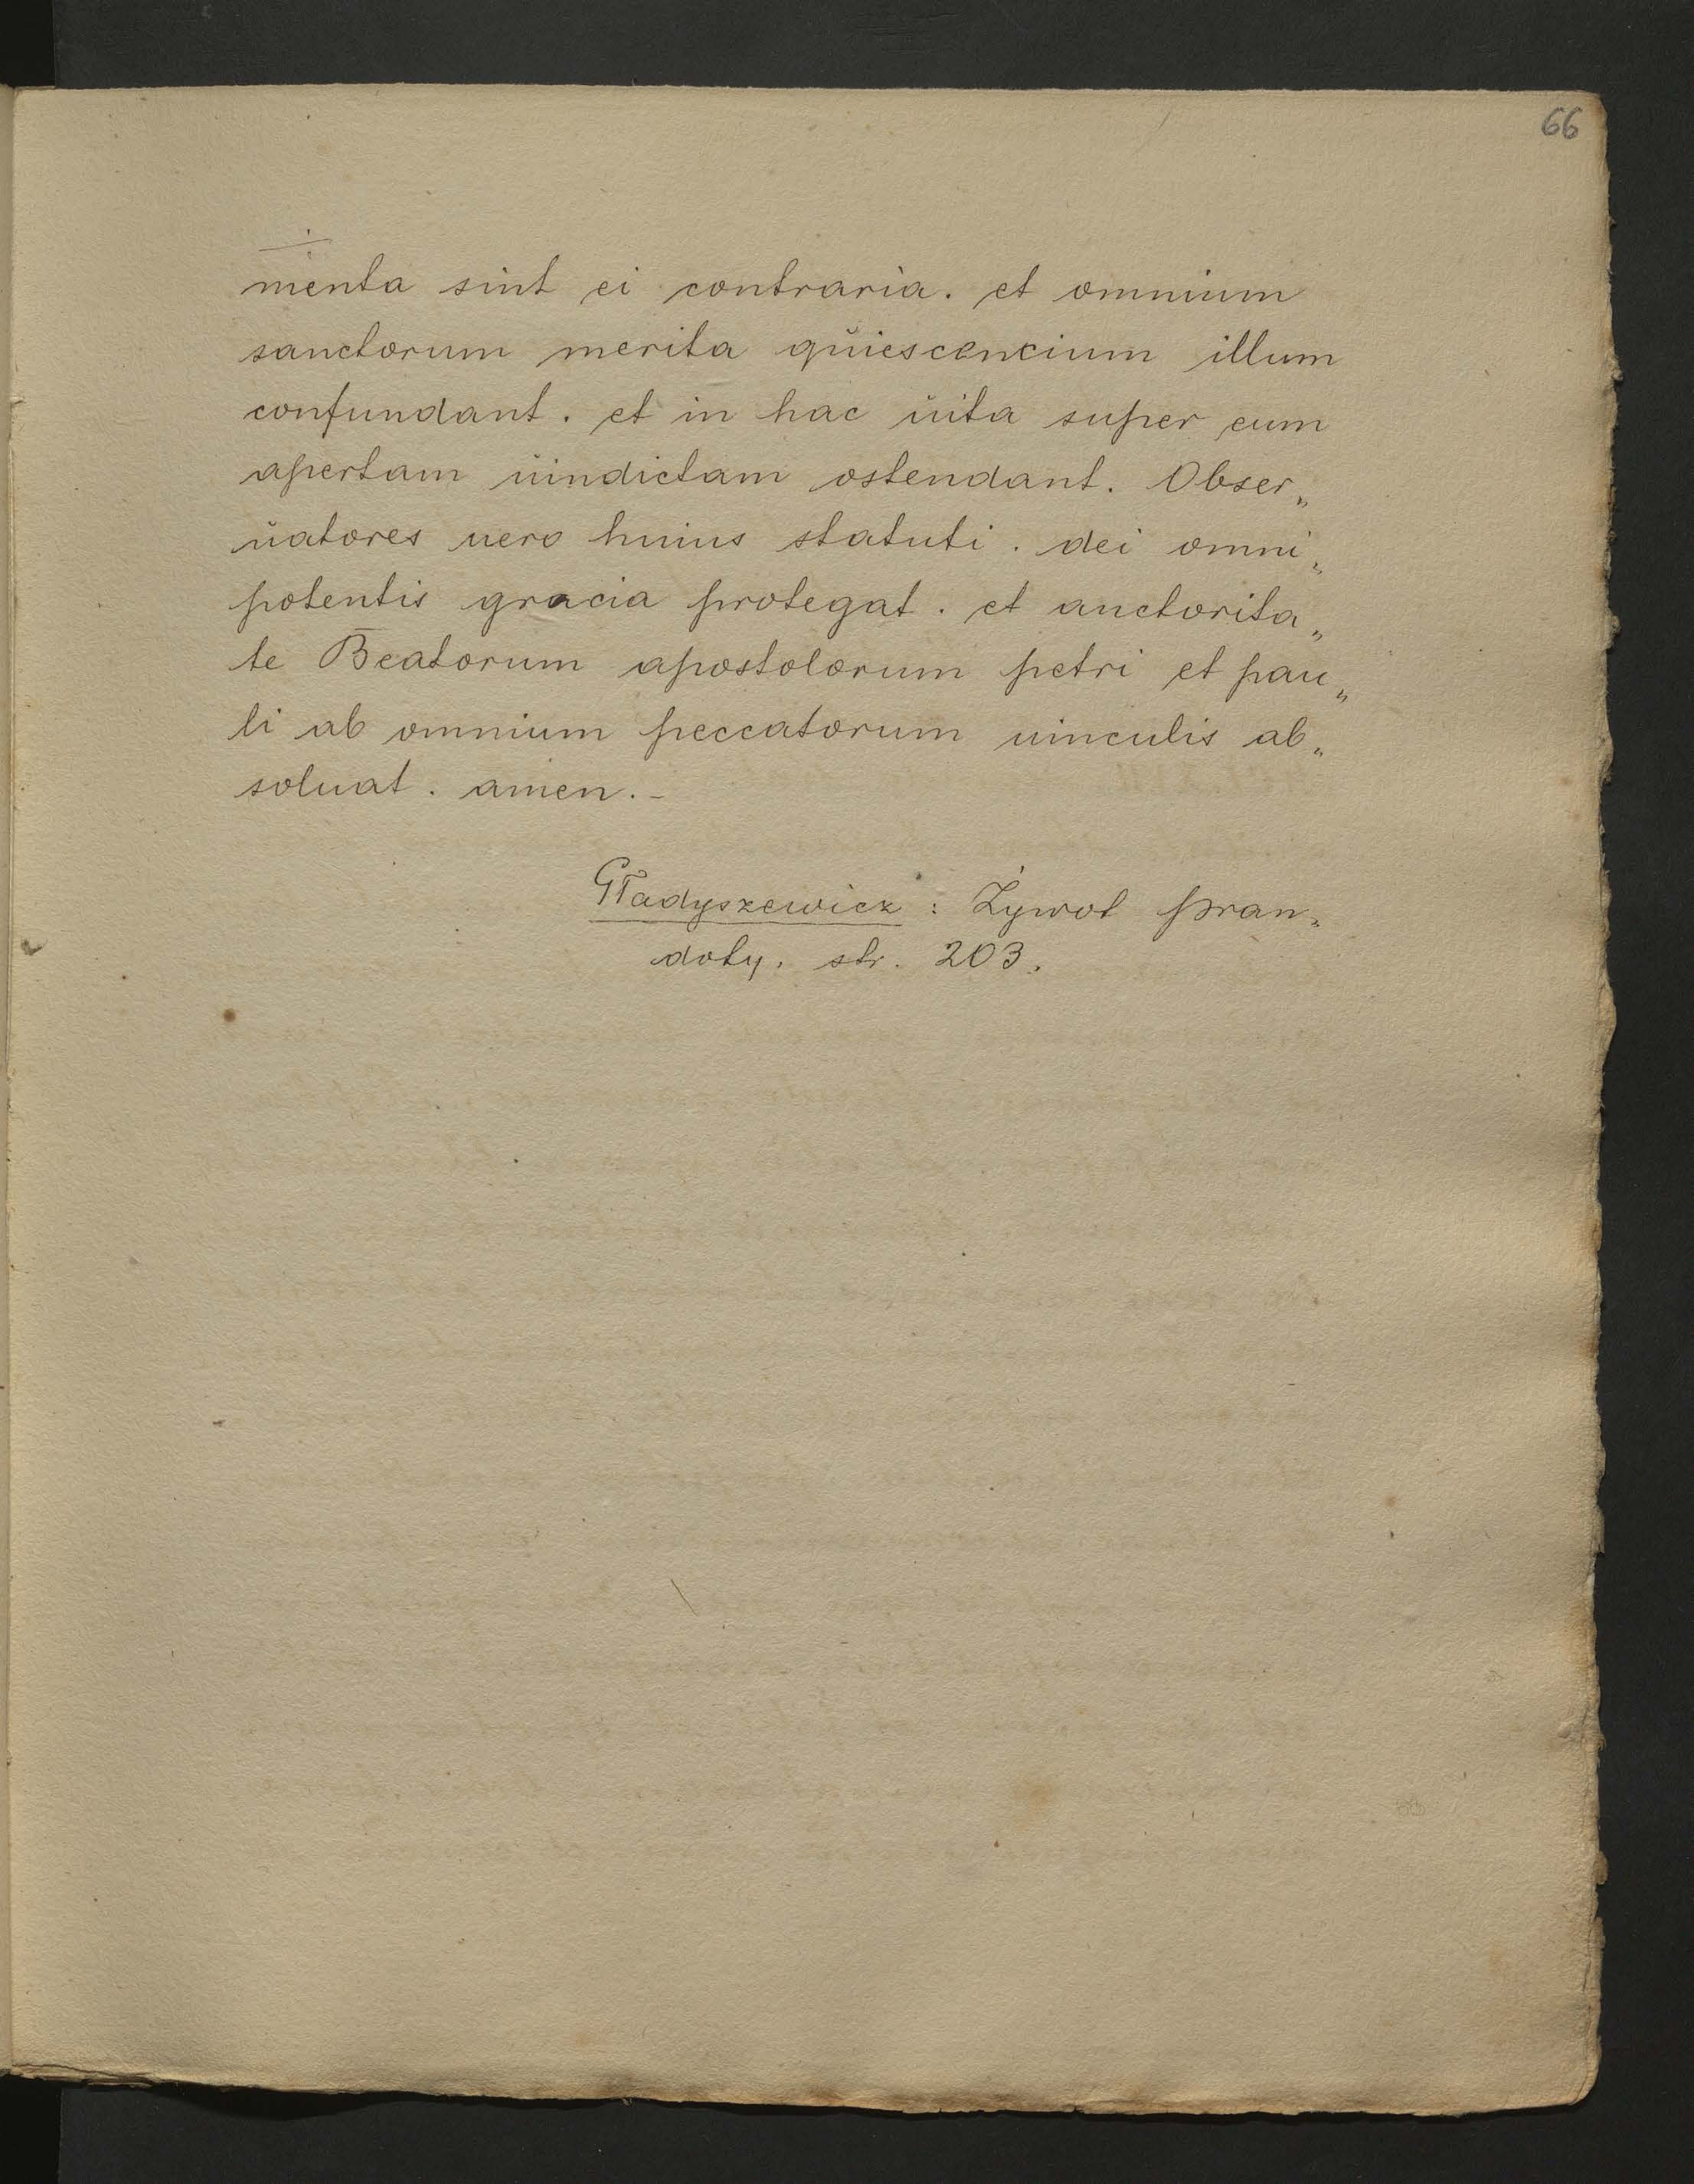 66
÷
menta sint ei contraria. et omnium
sanctorum merita quiescencium illum
confundant. et in hac uita super eum
apertam uindictam ostendant. Obser„
uatores uero huius statuti. dei omni„
potentis gracia protegat. et auctorita„
te Beatorum apostolorum petri et pau„
li ab omnium peccatorum uinculis ab„
soluat. amen.-
Gładyszewicz: Żywot Pran„
doty. str. 203.